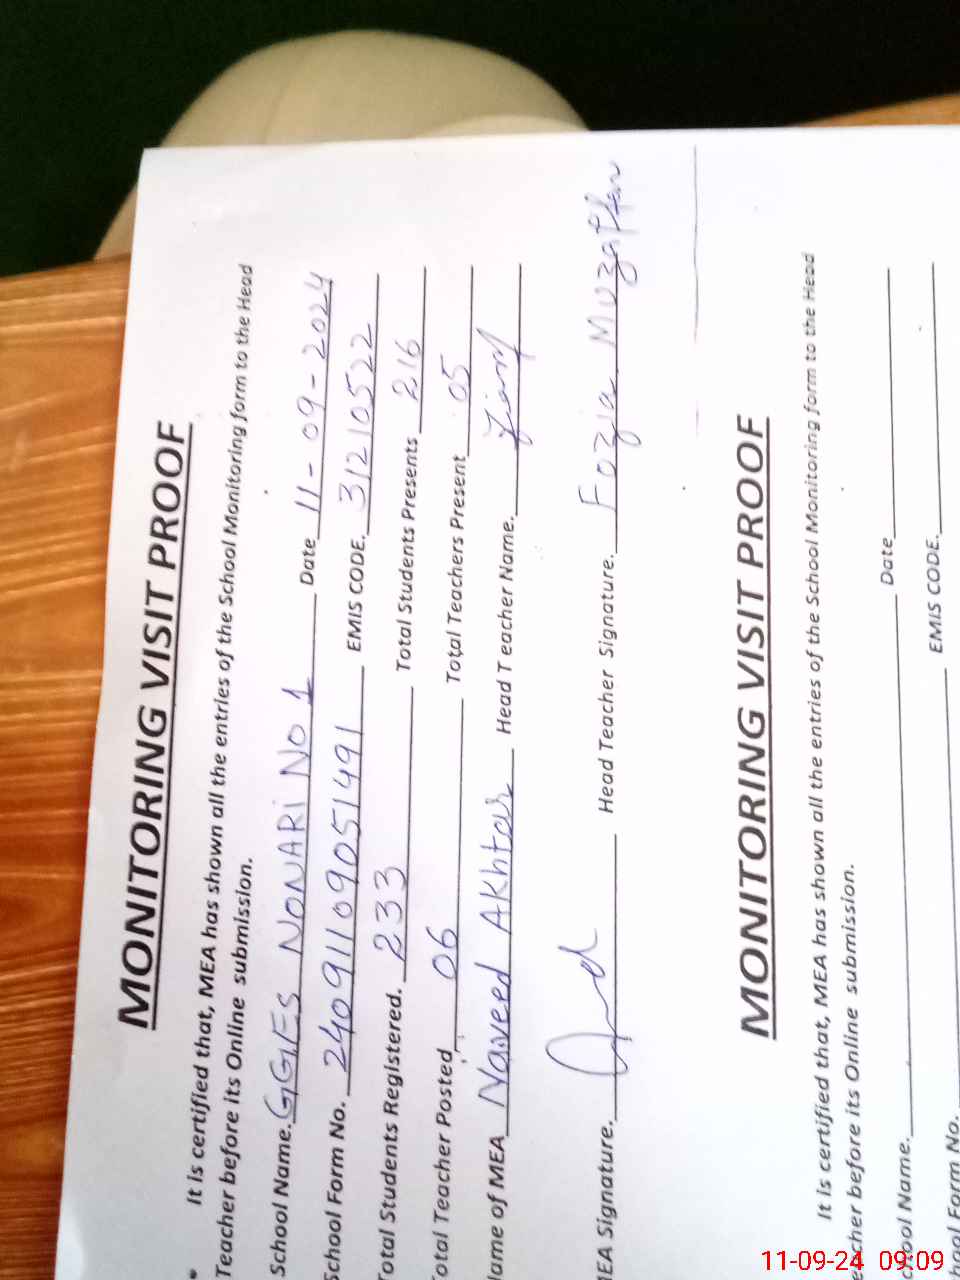 MONITORING VISIT PROOF
It is certified that, MEA has shown all the entries of the School Monitoring form to the Head
Teacher before its Online submission.
School Name. GGES NONARI NO 1 Date 11-09-2024
School Form No. 240911090951491 EMIS CODE. 31210522
otal Students Registered. 233 Total Students Presents 216
otal Teacher Posted 06 Total Teachers Present 05
lame of MEA Naveed Akhtar Head Teacher Name.
IEA Signature. Head Teacher Signature. Fozia Muzaffar
MONITORING VISIT PROOF
It is certified that, MEA has shown all the entries of the School Monitoring form to the Head
eacher before its Online submission.
chool Name. Date
hool Form No. EMIS CODE.
11-09-24 09:09